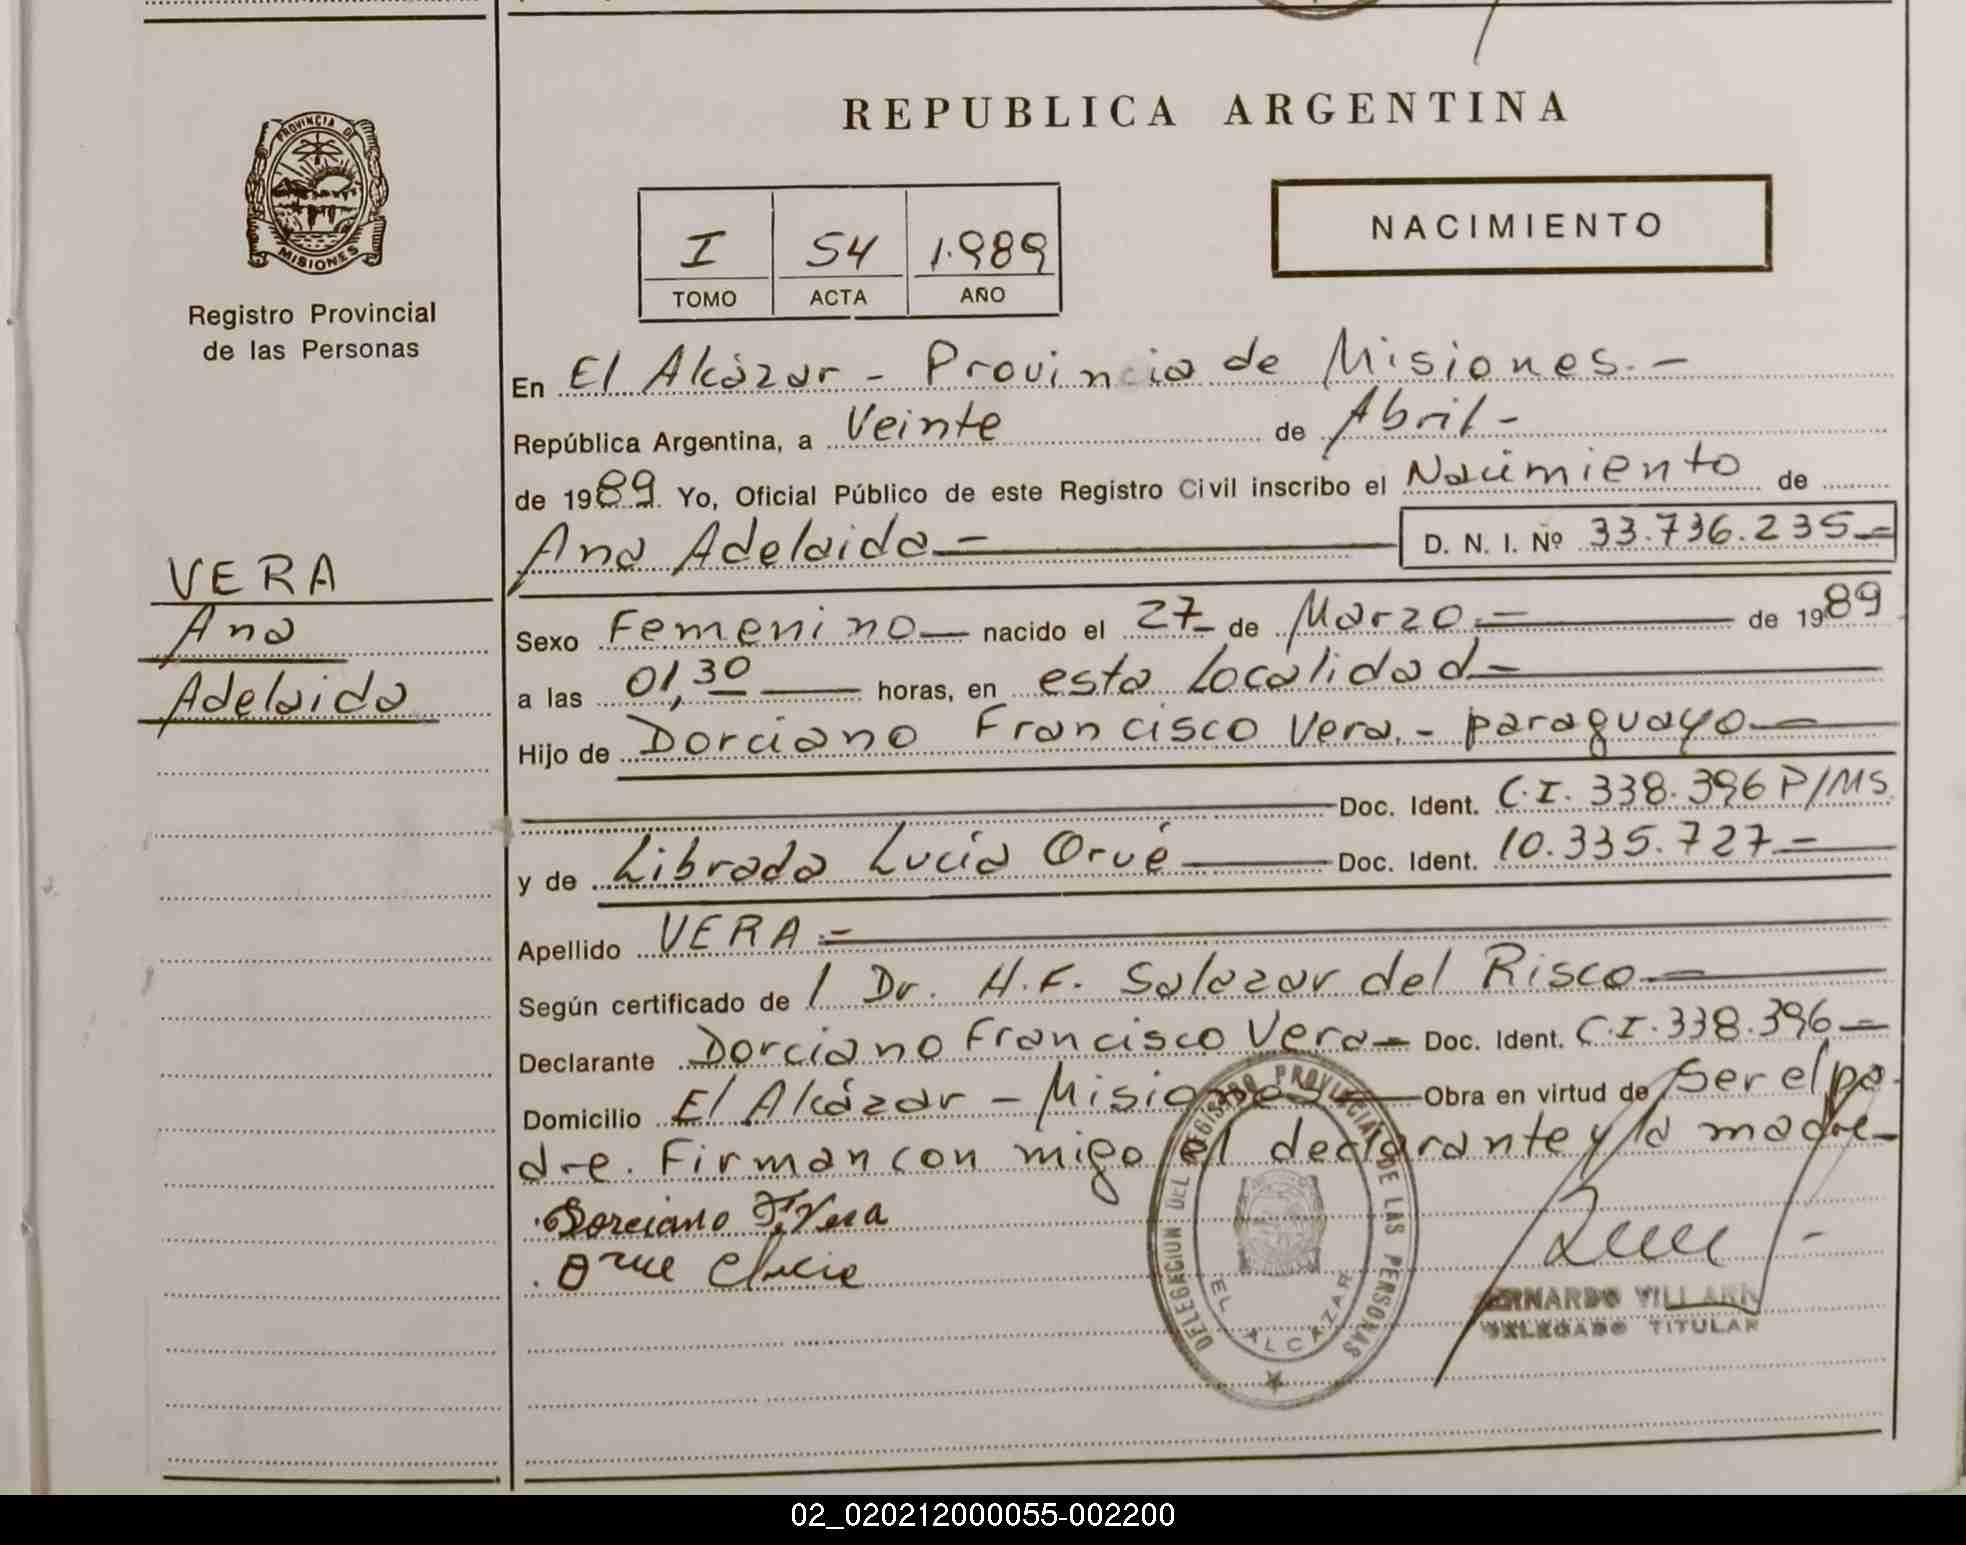 PROVINCIA DE
MISIONES
Registro Provincial
de las Personas
VERA
Ana
Adelaida
REPUBLICA ARGENTINA
I 54 1.989
TOMO ACTA AÑO
NACIMIENTO
En El Alcázar - Provincia de Misiones.-
República Argentina, a Veinte de Abril-
de 1989. Yo, Oficial Público de este Registro Civil inscribo el Nacimiento de
Ana Adelaida.- D. N. I. Nº 33.736.235-
Sexo Femenino- nacido el 27- de Marzo.- de 1989
a las 01,30 horas, en esta Localidad-
Hijo de Dorciano Francisco Vera.- paraguayo-
Doc. Ident. C.I. 338.396 P/MS.
y de Librada Lucía Orué Doc. Ident. 10.335.727-
Apellido VERA.-
Según certificado de / Dr. H.F. Salazar del Risco-
Declarante Dorciano Francisco Vera- Doc. Ident. C.I. 338.396-
Domicilio El Alcázar - Misiones- Obra en virtud de ser el pa-
dre. Firman con migo el declarante y la madre-
Dorciano F. Vera
Orue Lucia
DELEGACION DEL REGISTRO PROVINCIAL DE LAS PERSONAS
EL ALCAZAR
DELEGADO TITULAR
02_020212000055-002200